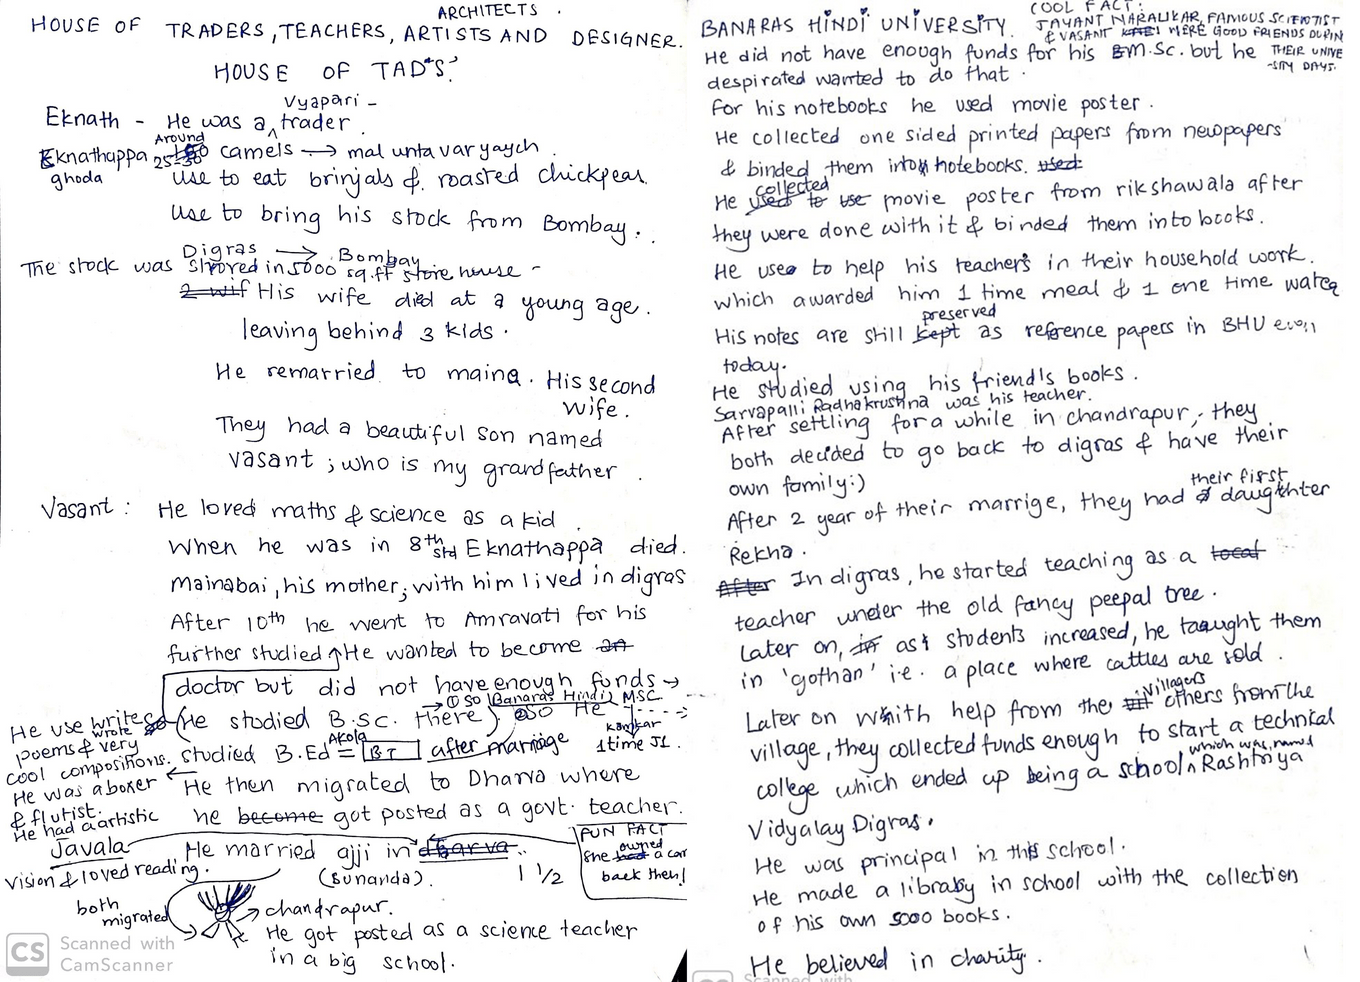 ARCHITECTS.
HOUSE OF TRADERS, TEACHERS, ARTISTS AND DESIGNER.
HOUSE OF TAD'S.
Vyapari -
Eknath - He was a trader.
Around
Eknathuppa 25-30 camels → mal unta var yaych.
ghoda
use to eat brinjals & roasted chickpeas.
use to bring his stock from Bombay.
Digras → Bombay
The stock was stroved in 5000 sq.ft store house -
2 wif His wife died at a young age.
leaving behind 3 kids.
He remarried to maina. His second
wife.
They had a beautiful son named
vasant ; who is my grandfather.
Vasant : He loved maths & science as a kid.
When he was in 8th std Eknathappa died.
Mainabai, his mother, with him lived in digras
After 10th he went to Amravati for his
further studied He wanted to become an
doctor but did not have enough funds →
→ ① so Banaras Hindi MSC.
(He studied B.SC. there) so He
Akola
studied B.Ed = BT after marriage
1 time J1.
He use write
wrote
poems & very
cool compositions.
He was a boxer ←
& flutist.
He had a artistic
vision & loved reading.
He then migrated to Dharva where
he become got posted as a govt. teacher.
Javala
He married ajji in dharva.
(Sunanda).
1 1/2
FUN FACT
owned
She had a car
back then!
both
migrated
→ chandrapur.
He got posted as a science teacher
in a big school.
CS Scanned with
CamScanner
COOL FACT:
JAYANT NARALIKAR, FAMOUS SCIENTIST
& VASANT WERE GOOD FRIENDS DURIN
THEIR UNIVE
-SITY DAYS.
BANARAS HINDI UNIVERSITY.
He did not have enough funds for his M.Sc. but he
despirated wanted to do that.
For his notebooks he used movie poster.
He collected one sided printed papers from newpapers
& binded them into notebooks. used
collected
He used to use movie poster from rikshawala after
they were done with it & binded them into books.
He used to help his teacher's in their household work.
which awarded him 1 time meal & 1 one time water
preserved
His notes are still kept as reference papers in BHU even
today.
He studied using his friend's books.
Sarvapalli Radhakrushna was his teacher.
After settling for a while in chandrapur, they
both decided to go back to digras & have their
own family:)
their first
After 2 year of their marrige, they had a daughter
Rekha.
After In digras, he started teaching as a local
teacher under the old fancy peepal tree.
Later on, in as students increased, he taught them
in 'gothan' i.e. a place where cattles are sold.
villagers
Later on with help from the others from the
village, they collected funds enough to start a technical
which was named
college which ended up being a school Rashtriya
Vidyalay Digras.
He was principal in this school.
He made a library in school with the collection
of his own 5000 books.
He believed in charity.
Scanned with